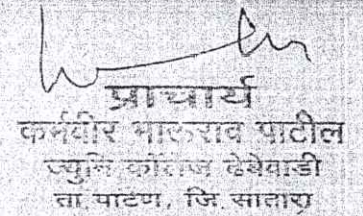 प्राचार्य
कर्मवीर भाऊराव पाटील
ज्युनि. कॉलेज ढेबेवाडी
ता. पाटण, जि. सातारा